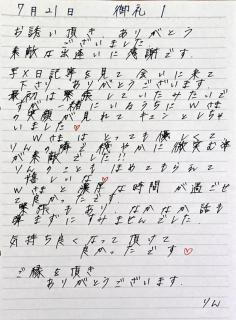 7月21日 御礼 1
お誘い頂き、ありがとう
ございました
素敵な出逢いに感謝です.
写メ日記等を見て会いに来て
下さり、ありがとうございます.
最初は緊張していたみたいで
すが、一緒にいるうちにWさま
の笑顔が見れてキュンとしちゃ
いました♡
Wさまはとっても優しくて
りんの隣で穏やかに微笑む姿
が素敵でした!!
りんのこともほめてもらえて
嬉しいな♡
Wさまと濃厚な時間が過ごせ
て良かったです
緊張もあり、なかなか話も
出来ずにすみませんでした
気持ち良くなって頂けて
良かったです♡
ご縁を頂き
ありがとうございます.
りん